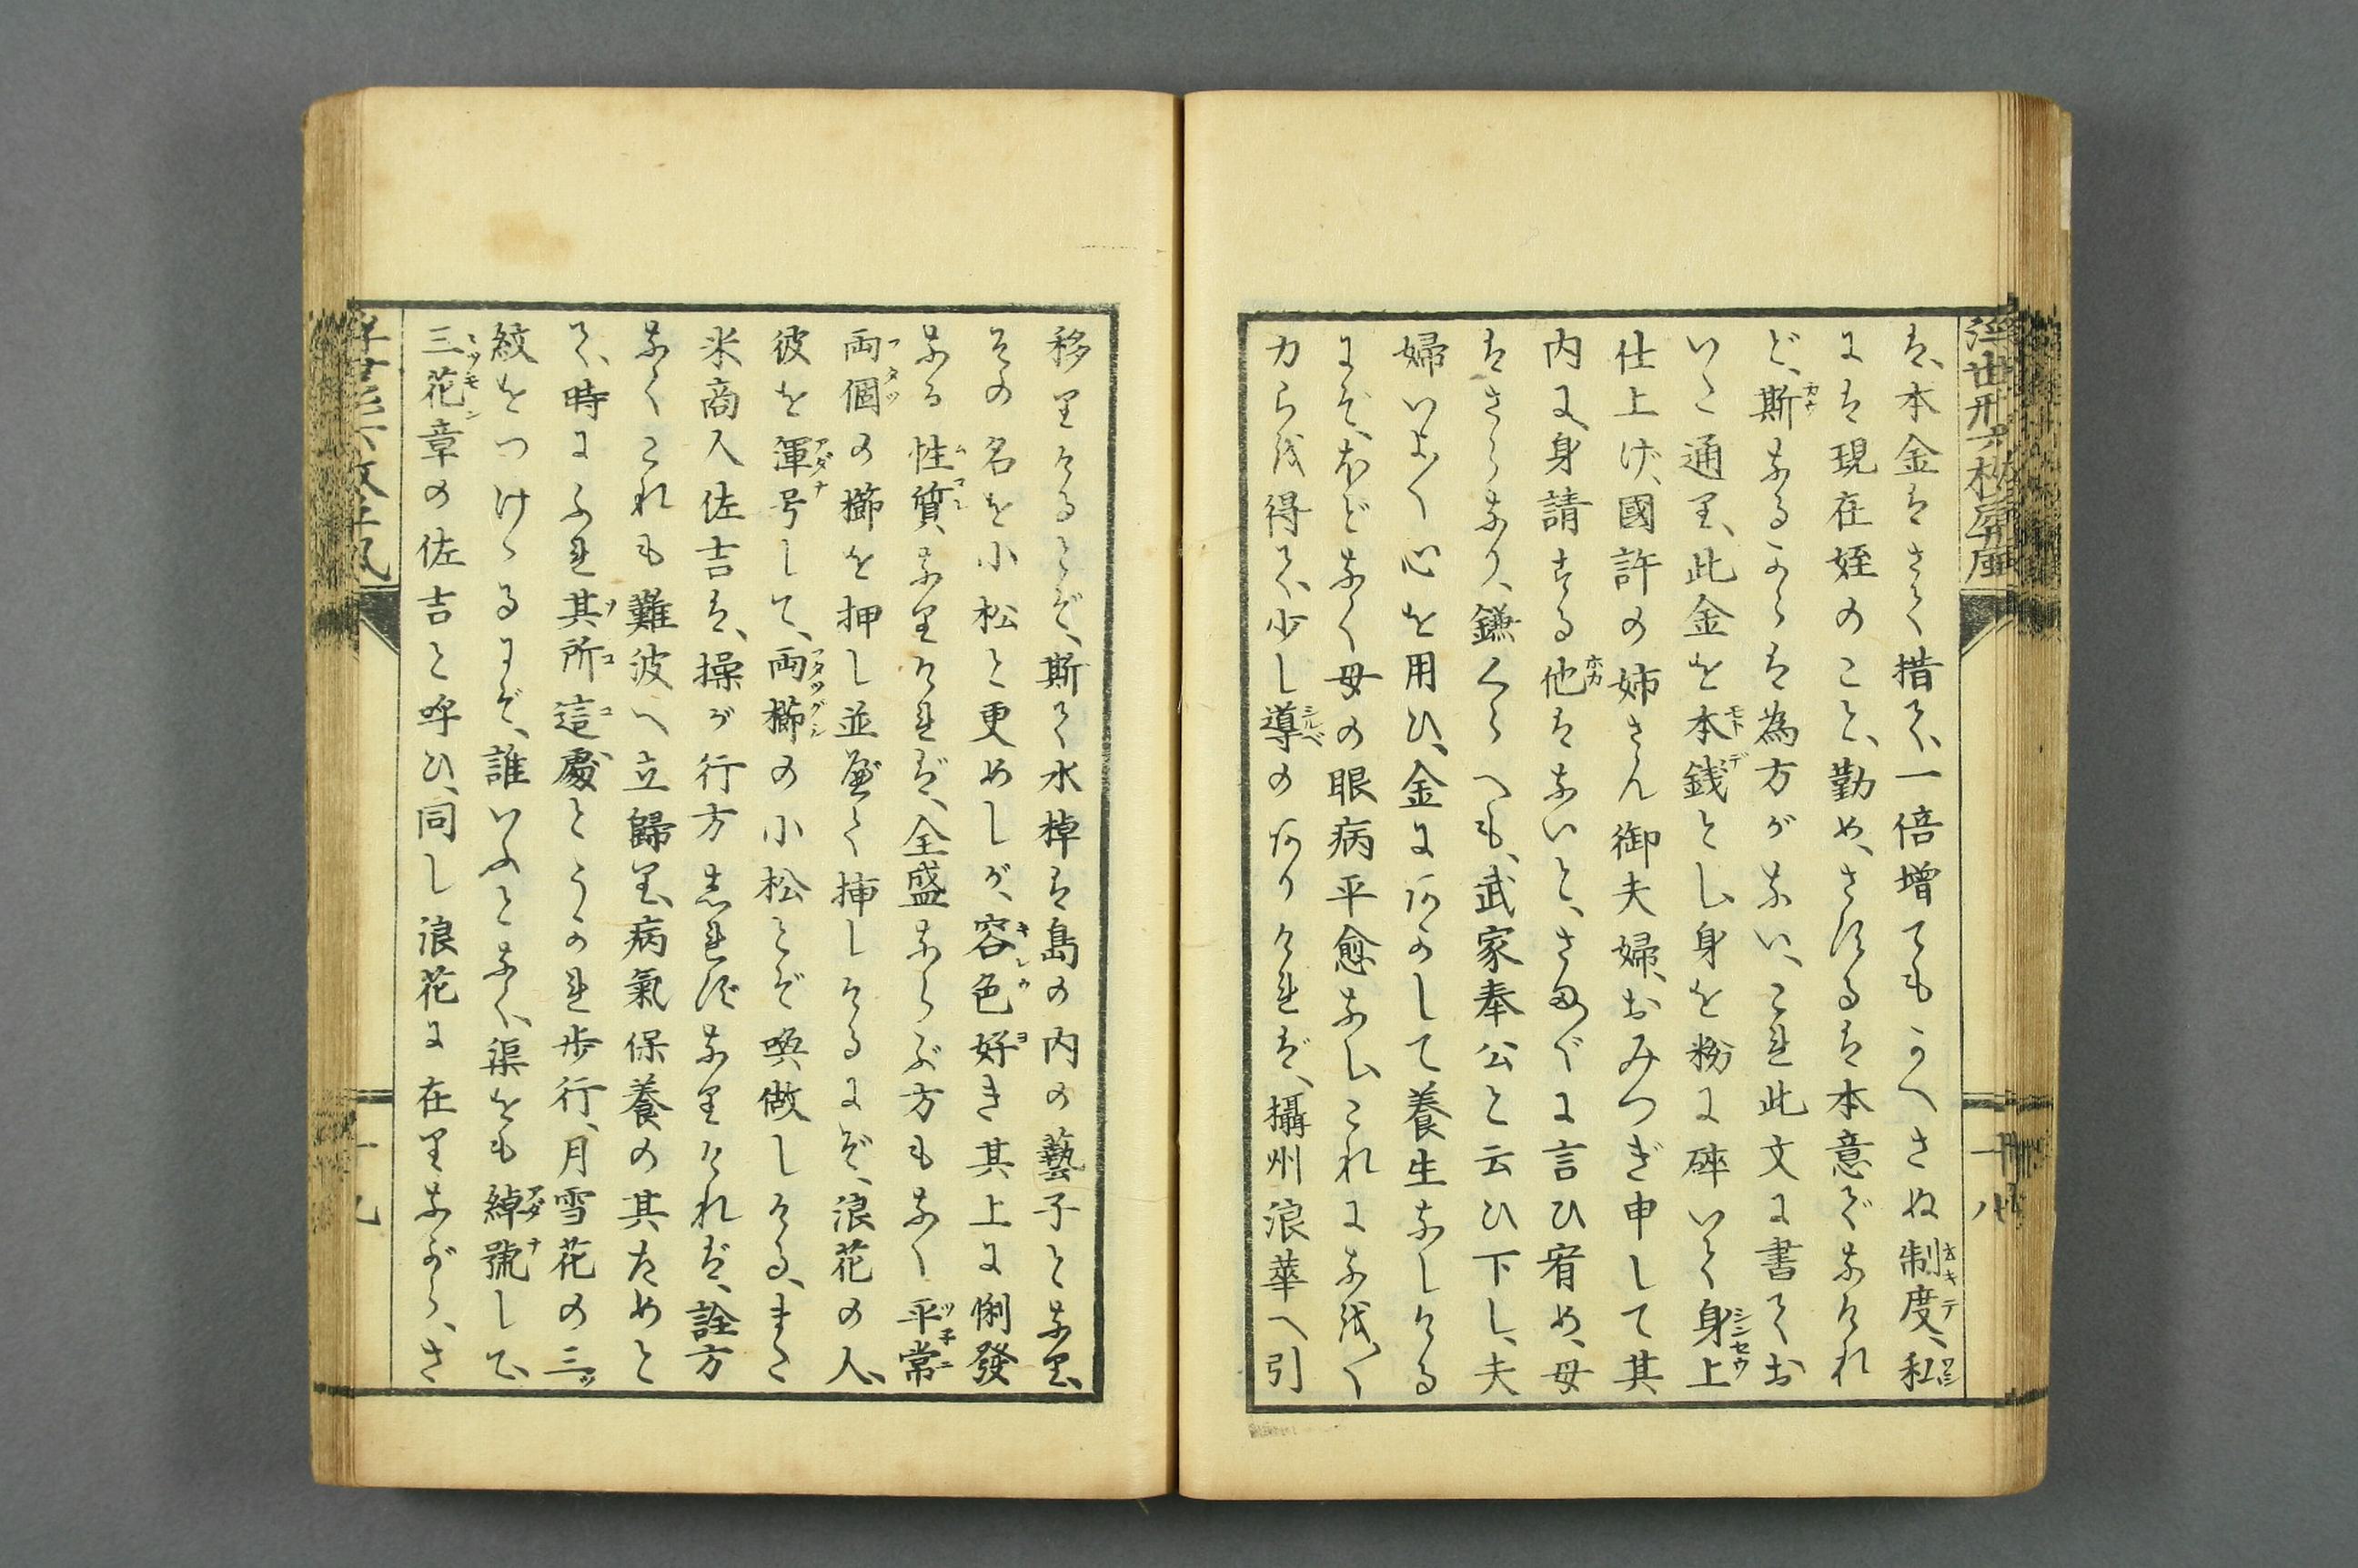 浮世形六枚屏風
十八
は、本金はさて措て、一倍増でもかへさぬ制度、私
には現在姪のこと、勤め、さするは本意でなけれ
ど、斯なるからは為方がない、これ此文に書てお
いた通り、此金を本銭とし、身を粉に砕いて身上
仕上げ、國許の姉さん御夫婦、おみつぎ申して其
内に、身請する他はないと、さま〴〵に言ひ宥め、母
はさらなり、鎌くらへも、武家奉公と云ひ下し、夫
婦いよ〳〵心を用ひ、金にあかして養生なしける
にぞ、ほどなく母の眼病平愈なし、これになほ〳〵
力を得て、少し導のありければ、攝州浪華へ引
移りけるとぞ、斯て水棹は島の内の藝子となり、
その名を小松と更めしが、容色好き其上に悧發
なる性質なりければ、全盛ならぶ方もなく平常
両個の櫛を押し並べて挿しけるにぞ、浪花の人、
彼を渾号して、両櫛の小松とぞ喚做しける、また
米商人佐吉は、操が行方しれずなりければ、詮方
なくこれも難波へ立歸り、病氣保養の其ためと
て、時にふれ其所這處とうかれ歩行、月雪花の三ッ
紋をつけゝるにぞ、誰いふとなく、渠をも綽號して、
三花章の佐吉と呼ひ、同し浪花に在りながら、さ
十九